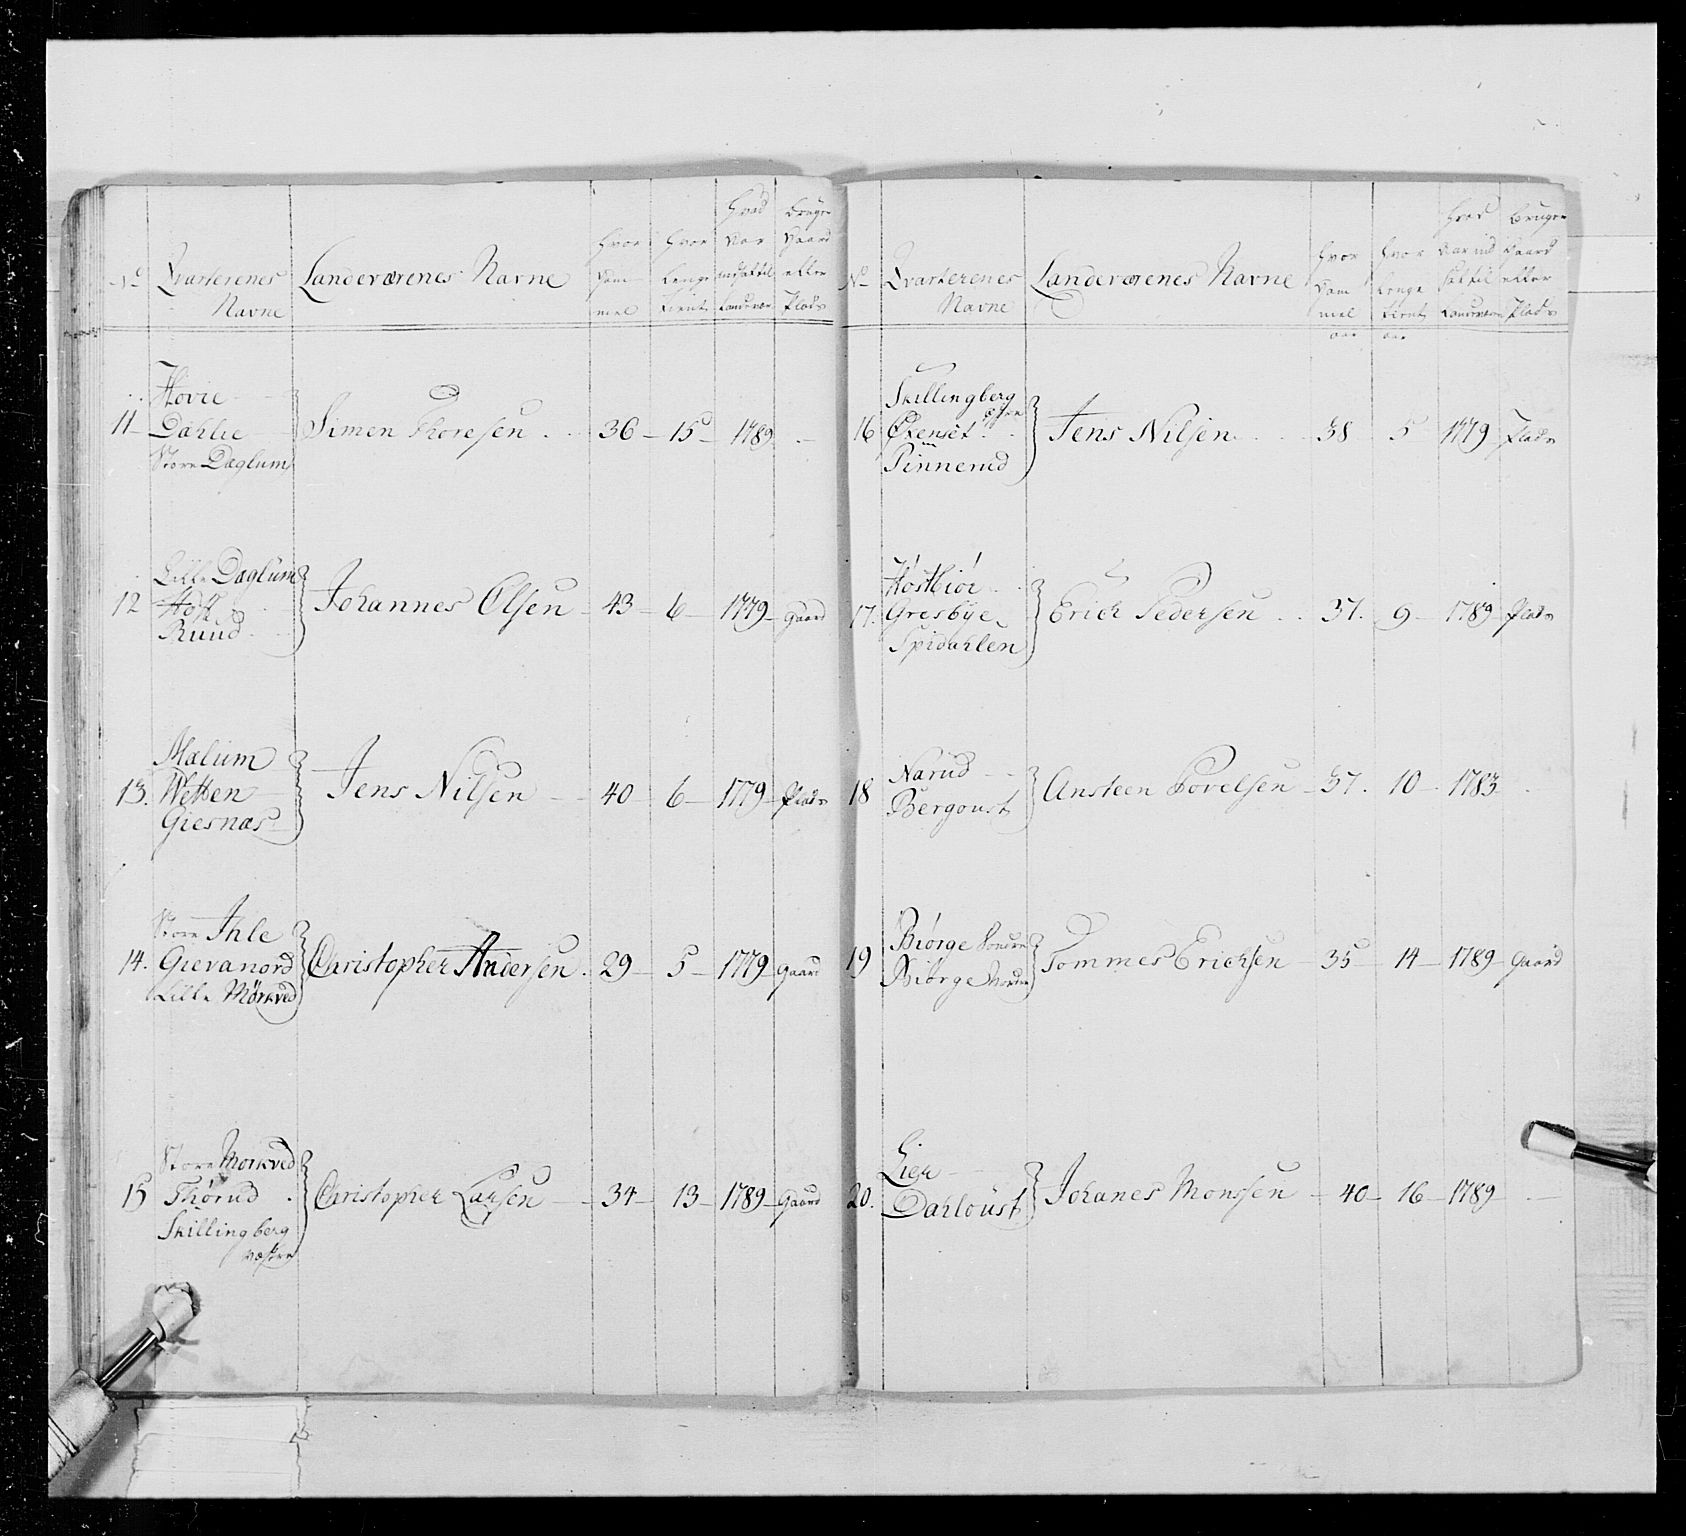 No Qvarterenes Navne Landeværenes Navne Hvor Gam mel Hvor Lenge tient Hvad Aar indsat til Landevær Bruger Gaard eller Plads
11 Hovie Dahlie Store Dæglum Simen Thoresen 36 15 1789
12 Lille Dæglum Hoff Ruud Johannes Olsen 43 6 1779 Gaard
13. Mælum Wetten Giesnæs Jens Nilsen 40 6 1779 Plads
14. Store Ihle Gievanord Lille Mørkved Christopher Andersen 29 5 1779 Gaard
15 Store Morkved Thørud Skillingberg væstre Christopher Larsen 34 13 1789 Gaard
No Qvarterenes Navne Landeværenes Navne Hvor Gam mel aar Hvor Lenge tient aar Hvad Aar ind sat til Landeværn Bruger Gaard eller Plads
16 Skillingberg østre Øxenset Pinnerud Jens Nilsen 38 5 1779 Plads
17. Høstbiør Gresbye Spidahlen Erich Pedersen 37. 9 1789 Plads
18 Narud Bergoust Ansteen Povelsen 37. 10 1783
19 Biørge Søndre Biørge Nordre Tommes Erichsen 35 14 1789 Gaard
20. Lier Darloust Johanes Monssen 40 16 1789